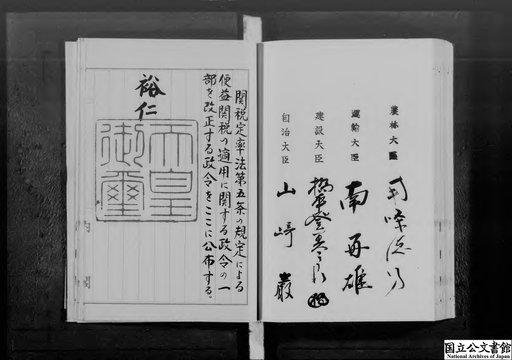 農林大臣 南條徳男
運輸大臣 南好雄
建設大臣 橋本登美三郎
自治大臣 山崎巖
関税定率法第五条の規定による
便益関税の適用に関する政令の一
部を改正する政令をここに公布する。
裕仁
天皇
御璽
国立公文書館
National Archives of Japan